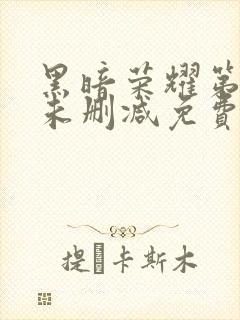 黑暗荣耀第
未删减免費
提�卡斯木